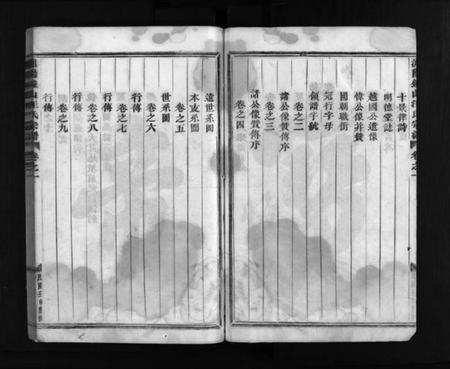 十景律詩
明德堂誌
越國公遺像
偉公像并贊
國朝職銜
冠行字母
領譜字號
卷之二
諸公像贊傳序
卷之三
諸公像贊傳序
卷之四
遠世系圖
本支系圖
卷之五
世系圖
卷之六
行傳
卷之七
行傳
卷之八
行傳
卷之九
行傳